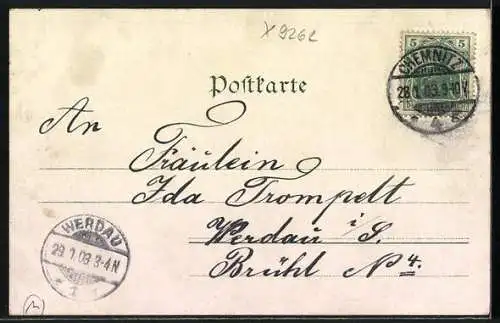 X 926L
5 5
CHEMNITZ
28.1.03.9-10V.
* 4 *
Postkarte
An
Fräulein
Ida Trompelt
Werdau i/S.
Brühl No 4.
WERDAU
29.1.03.3-4N
* 1 *